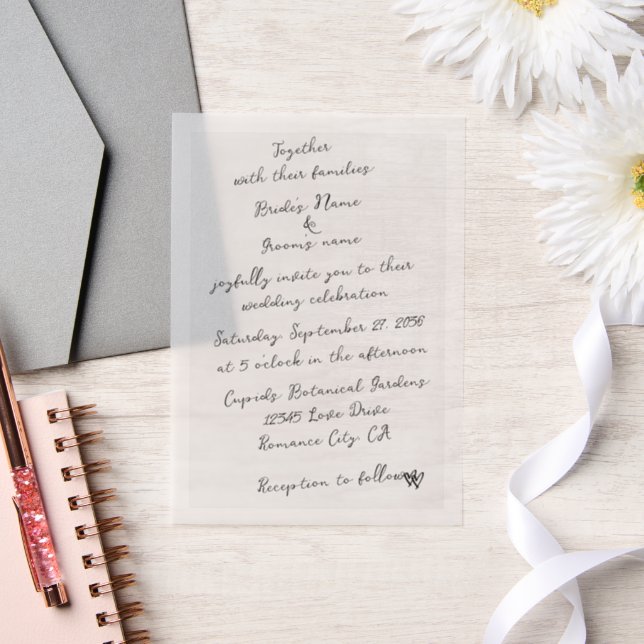 Together
with their families
Bride's Name
&
Groom's name
joyfully invite you to their
wedding celebration
Saturday, September 27, 2036
at 5 o'clock in the afternoon
Cupids Botanical Gardens
12345 Love Drive
Romance City, CA
Reception to follow